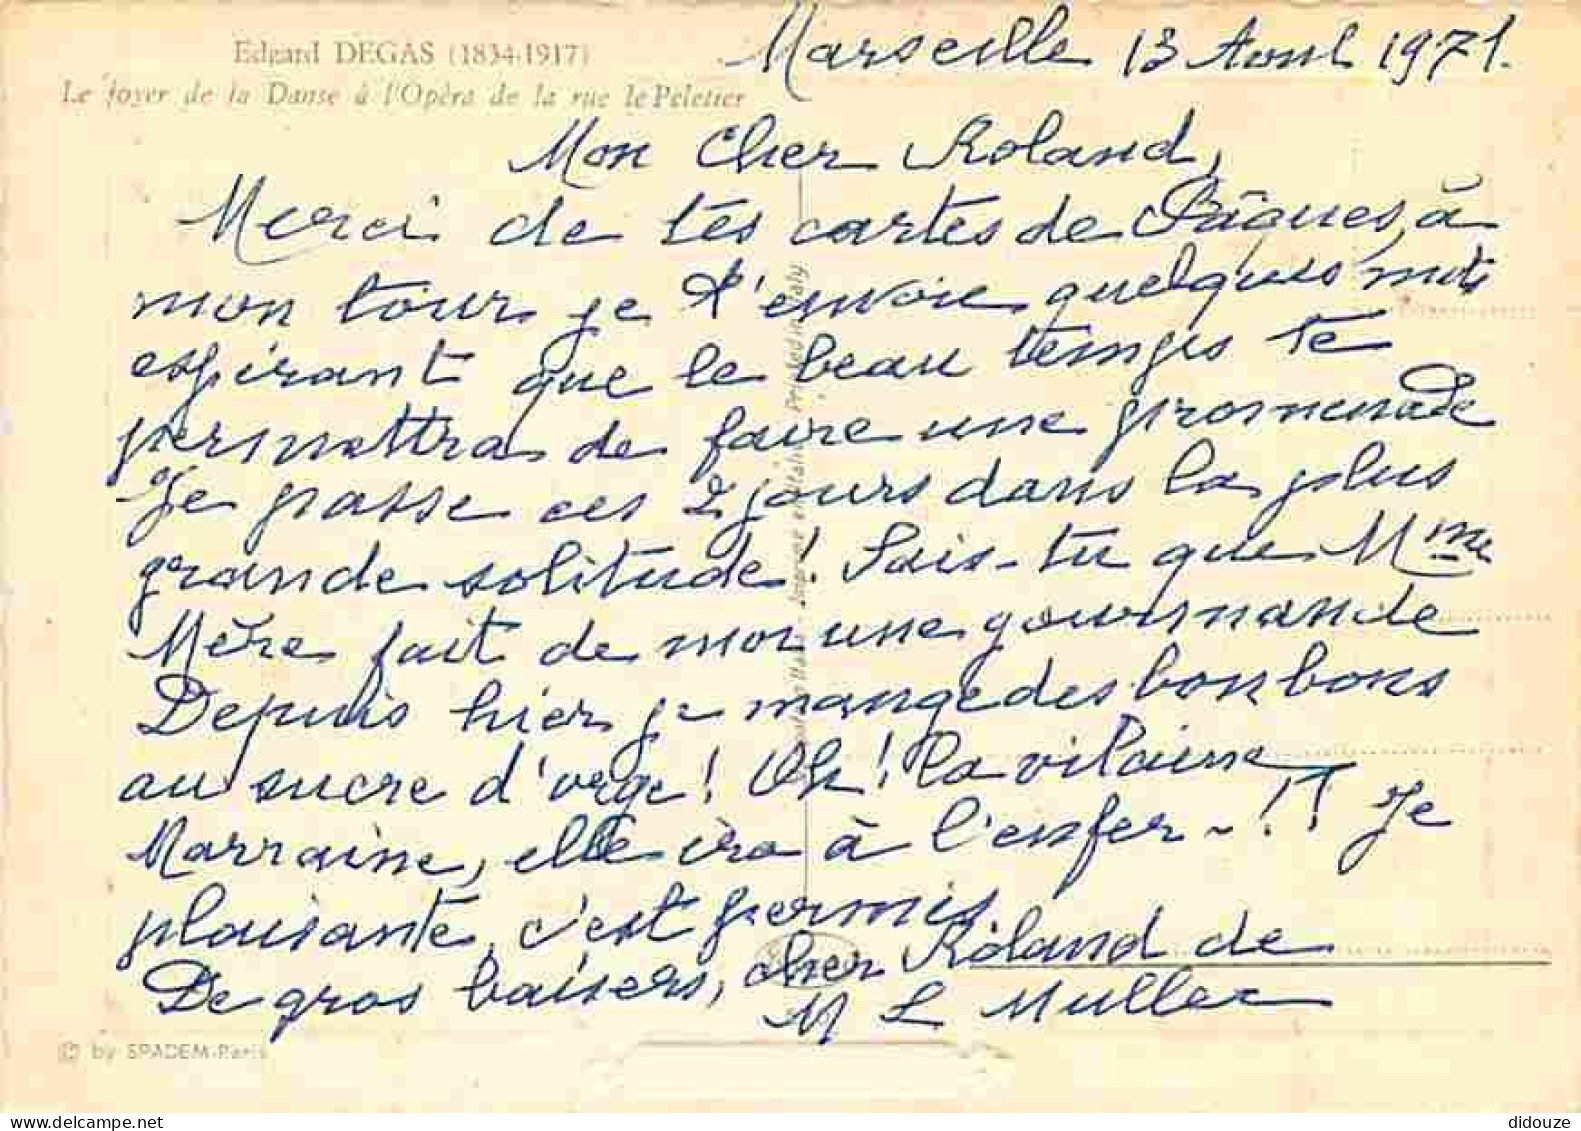 Edgard DEGAS (1834-1917)
Le foyer de la Danse à l'Opéra de la rue le Peletier
Marseille 13 Avril 1971.
Mon Cher Roland,
Merci de tes cartes de Pâques, à
mon tour je t'envoie quelques mots
espérant que le beau temps te
permettra de faire une promenade
Je passe ces 2 jours dans la plus
grande solitude! Sais-tu que Mme
Mère fait de moi une gourmande
Depuis hier je mange des bonbons
au sucre d'orge! Oh! la vilaine
Marraine, elle ira à l'enfer~!! Je
plaisante, c'est permis
De gros baisers, cher Roland de
M L Muller
Printed in Italy
© by SPADEM-Paris
didouze